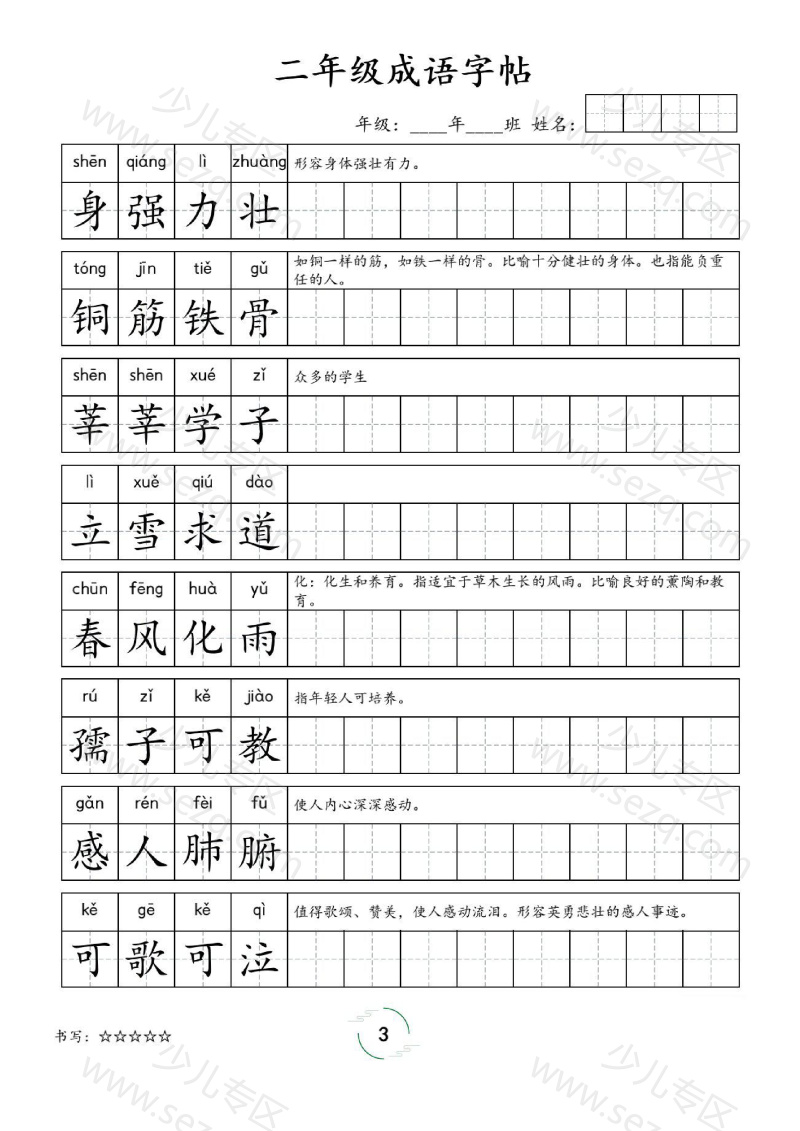 二年级成语字帖
年级：____年____班 姓名：
shēn qiáng lì zhuàng 形容身体强壮有力。
身 强 力 壮
tóng jīn tiě gǔ 如铜一样的筋，如铁一样的骨。比喻十分健壮的身体。也指能负重
任的人。
铜 筋 铁 骨
shēn shēn xué zǐ 众多的学生
莘 莘 学 子
lì xuě qiú dào
立 雪 求 道
chūn fēng huà yǔ 化：化生和养育。指适宜于草木生长的风雨。比喻良好的薰陶和教
育。
春 风 化 雨
rú zǐ kě jiào 指年轻人可培养。
孺 子 可 教
gǎn rén fèi fǔ 使人内心深深感动。
感 人 肺 腑
kě gē kě qì 值得歌颂、赞美，使人感动流泪。形容英勇悲壮的感人事迹。
可 歌 可 泣
书写：☆☆☆☆☆
3
少儿专区
www.sezq.com
少儿专区
www.sezq.com
少儿专区
www.sezq.com
少儿专区
www.sezq.com
少儿专区
www.sezq.com
少儿专区
www.sezq.com
少儿专区
www.sezq.com
少儿专区
www.sezq.com